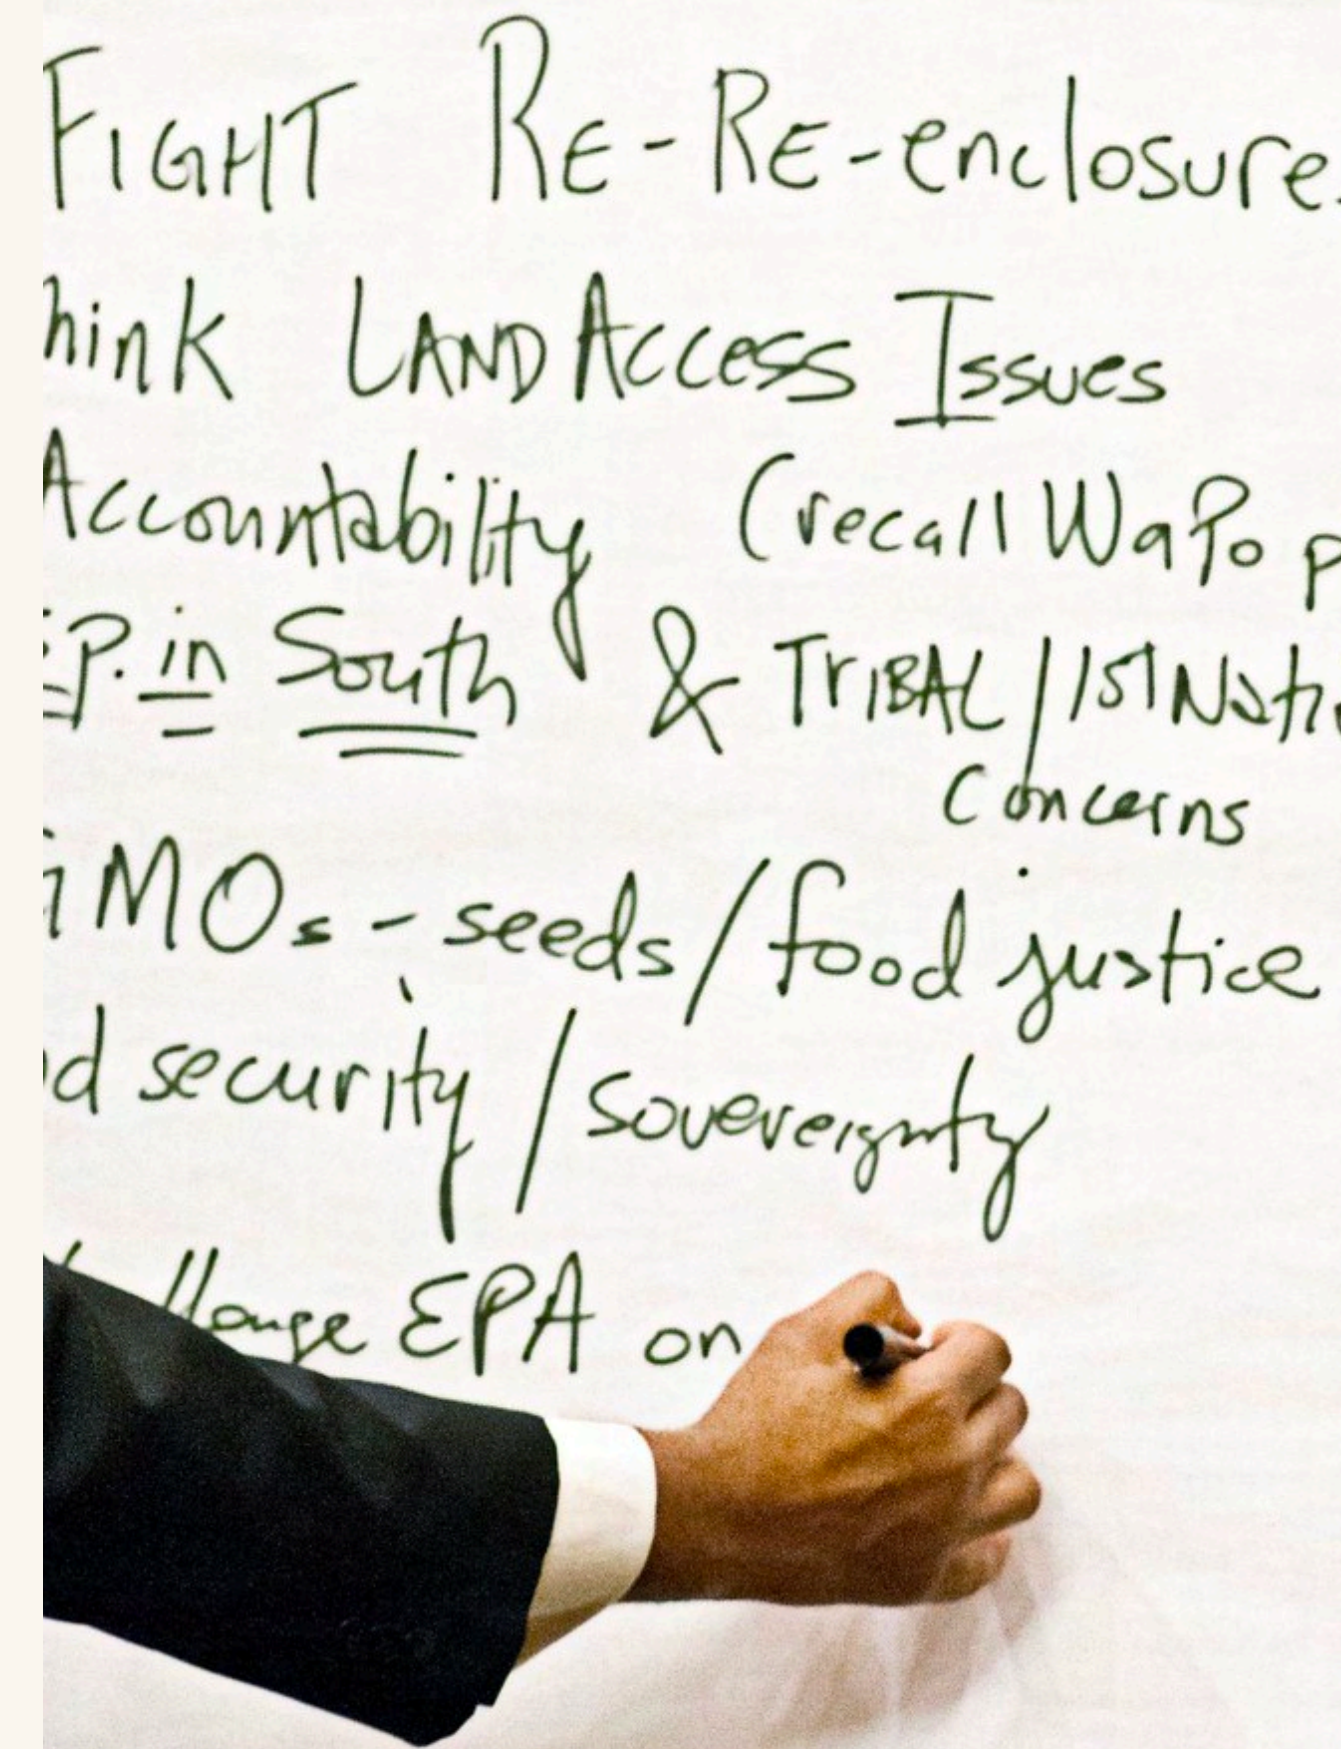 FIGHT RE-RE-enclosure
hink LAND Access Issues
Accountability (recall WaPo p
P. in South & TRIBAL / 1st Natio
Concerns
GMOs - seeds / food justice
d security / sovereignty
llange EPA on